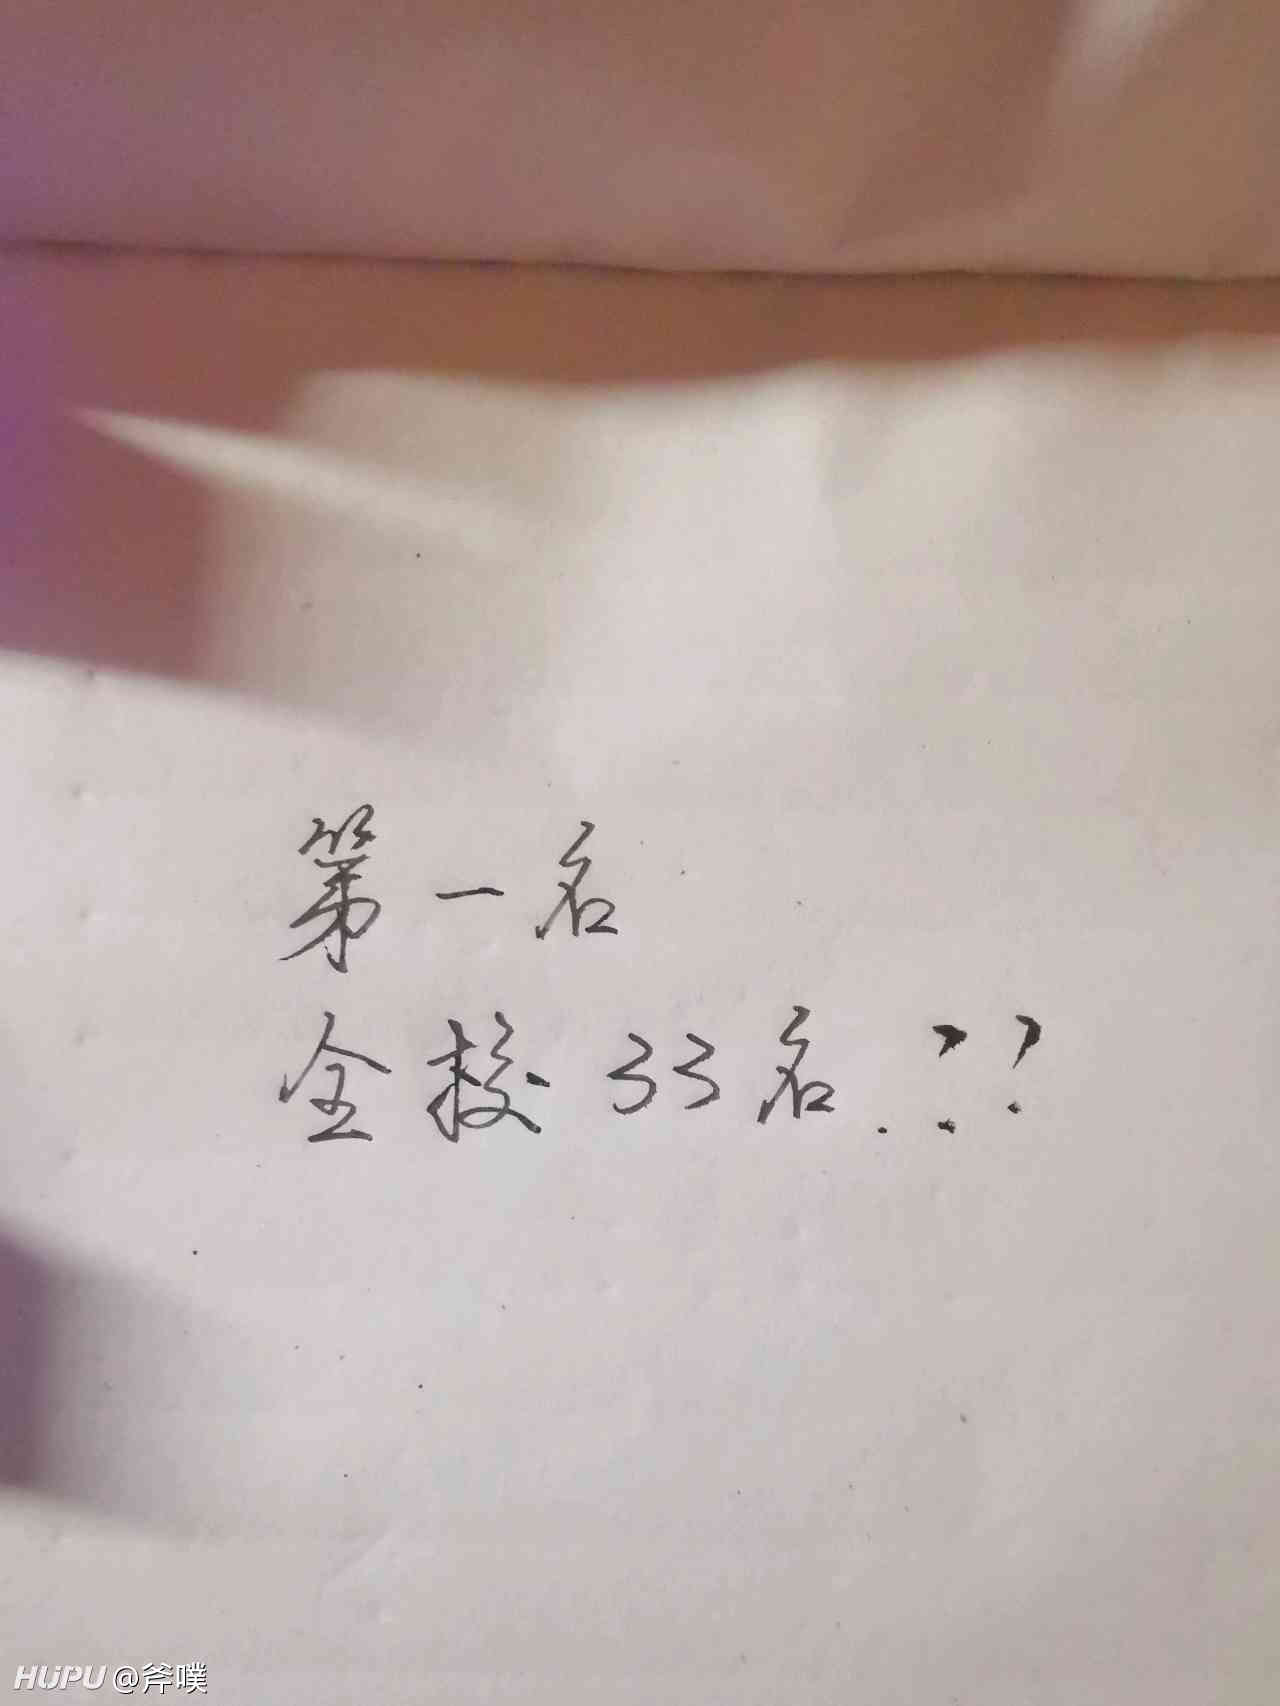 第一名
全校33名.??
HUPU @斧噗